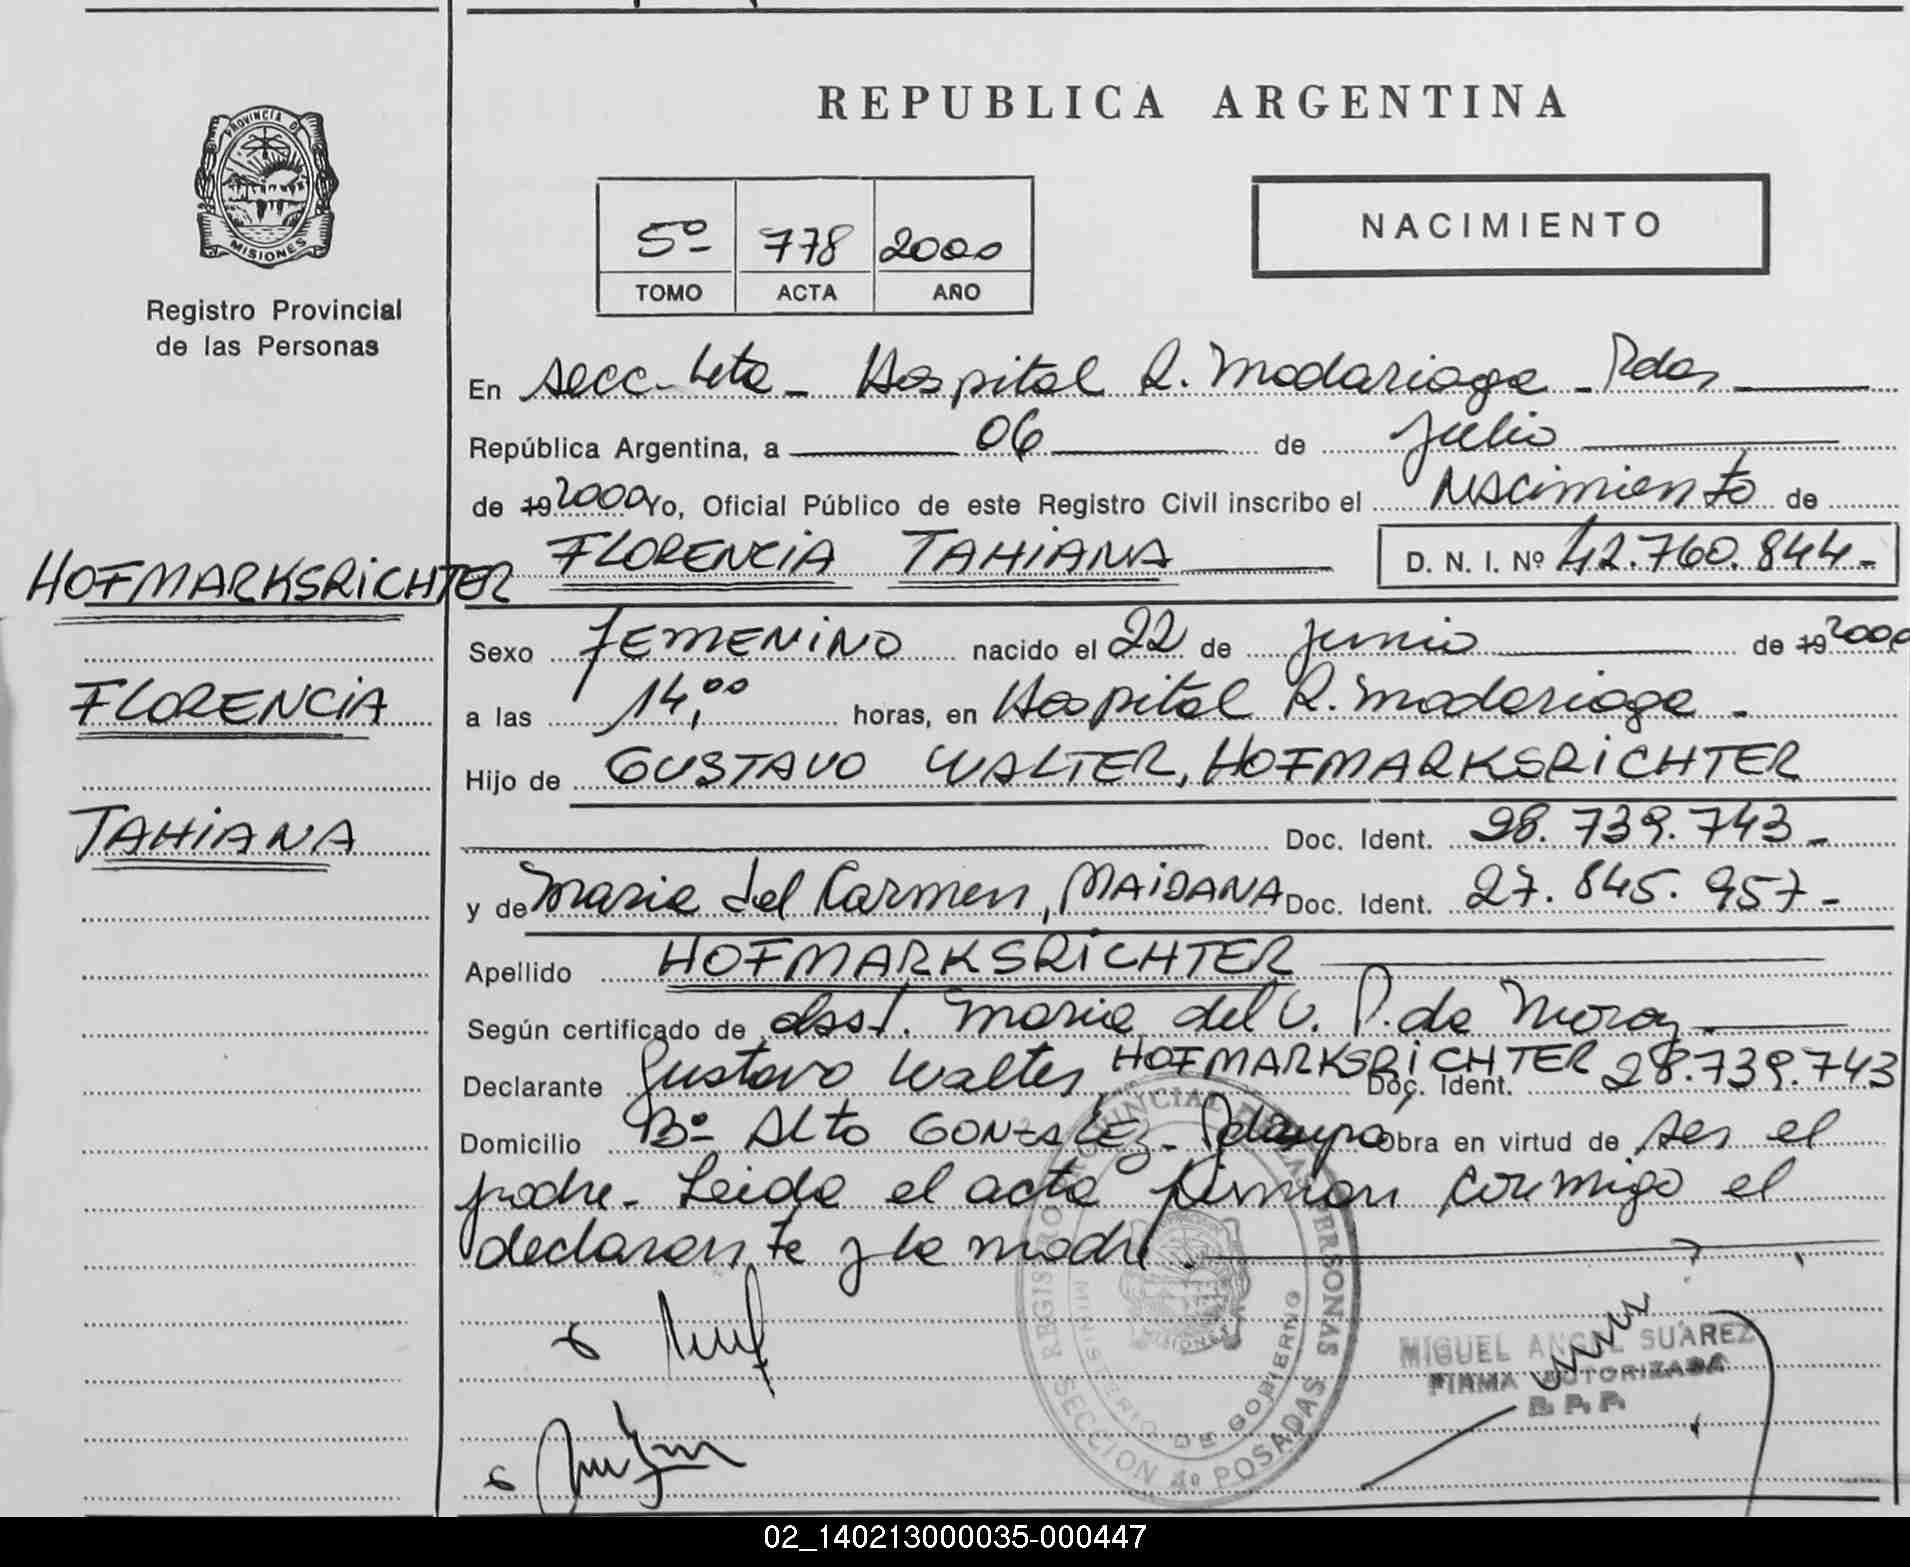 REPUBLICA ARGENTINA
PROVINCIA DE
MISIONES
Registro Provincial
de las Personas
5º 778 2000
TOMO ACTA AÑO
NACIMIENTO
En secc. 4ta - Hospital R. Madariaga - Pdas
República Argentina, a 06 de Julio
de 19 2000 Yo, Oficial Público de este Registro Civil inscribo el Nacimiento de
FLORENCIA TAHIANA D. N. I. Nº 42.760.844-
HOFMARKSRICHTER
FLORENCIA
TAHIANA
Sexo FEMENINO nacido el 22 de junio de 19 2000
a las 14,00 horas, en Hospital R. Madariaga -
Hijo de GUSTAVO WALTER, HOFMARKSRICHTER
Doc. Ident. 28.739.743-
y de Maria del Carmen, MAIDANA Doc. Ident. 27.845.957-
Apellido HOFMARKSRICHTER
Según certificado de obst. Maria del V. P. de
Declarante Gustavo Walter HOFMARKSRICHTER Doc. Ident. 28.739.743
Domicilio Bº ALTO GONZALEZ - Obra en virtud de ser el
padre - Leida el acta firman conmigo el
declarante y la madre.
REGISTRO PROVINCIAL DE LAS PERSONAS
MINISTERIO DE GOBIERNO
MISIONES
SECCION 4º POSADAS
MIGUEL ANGEL SUAREZ
FIRMA AUTORIZADA
R. P. P.
02_140213000035-000447